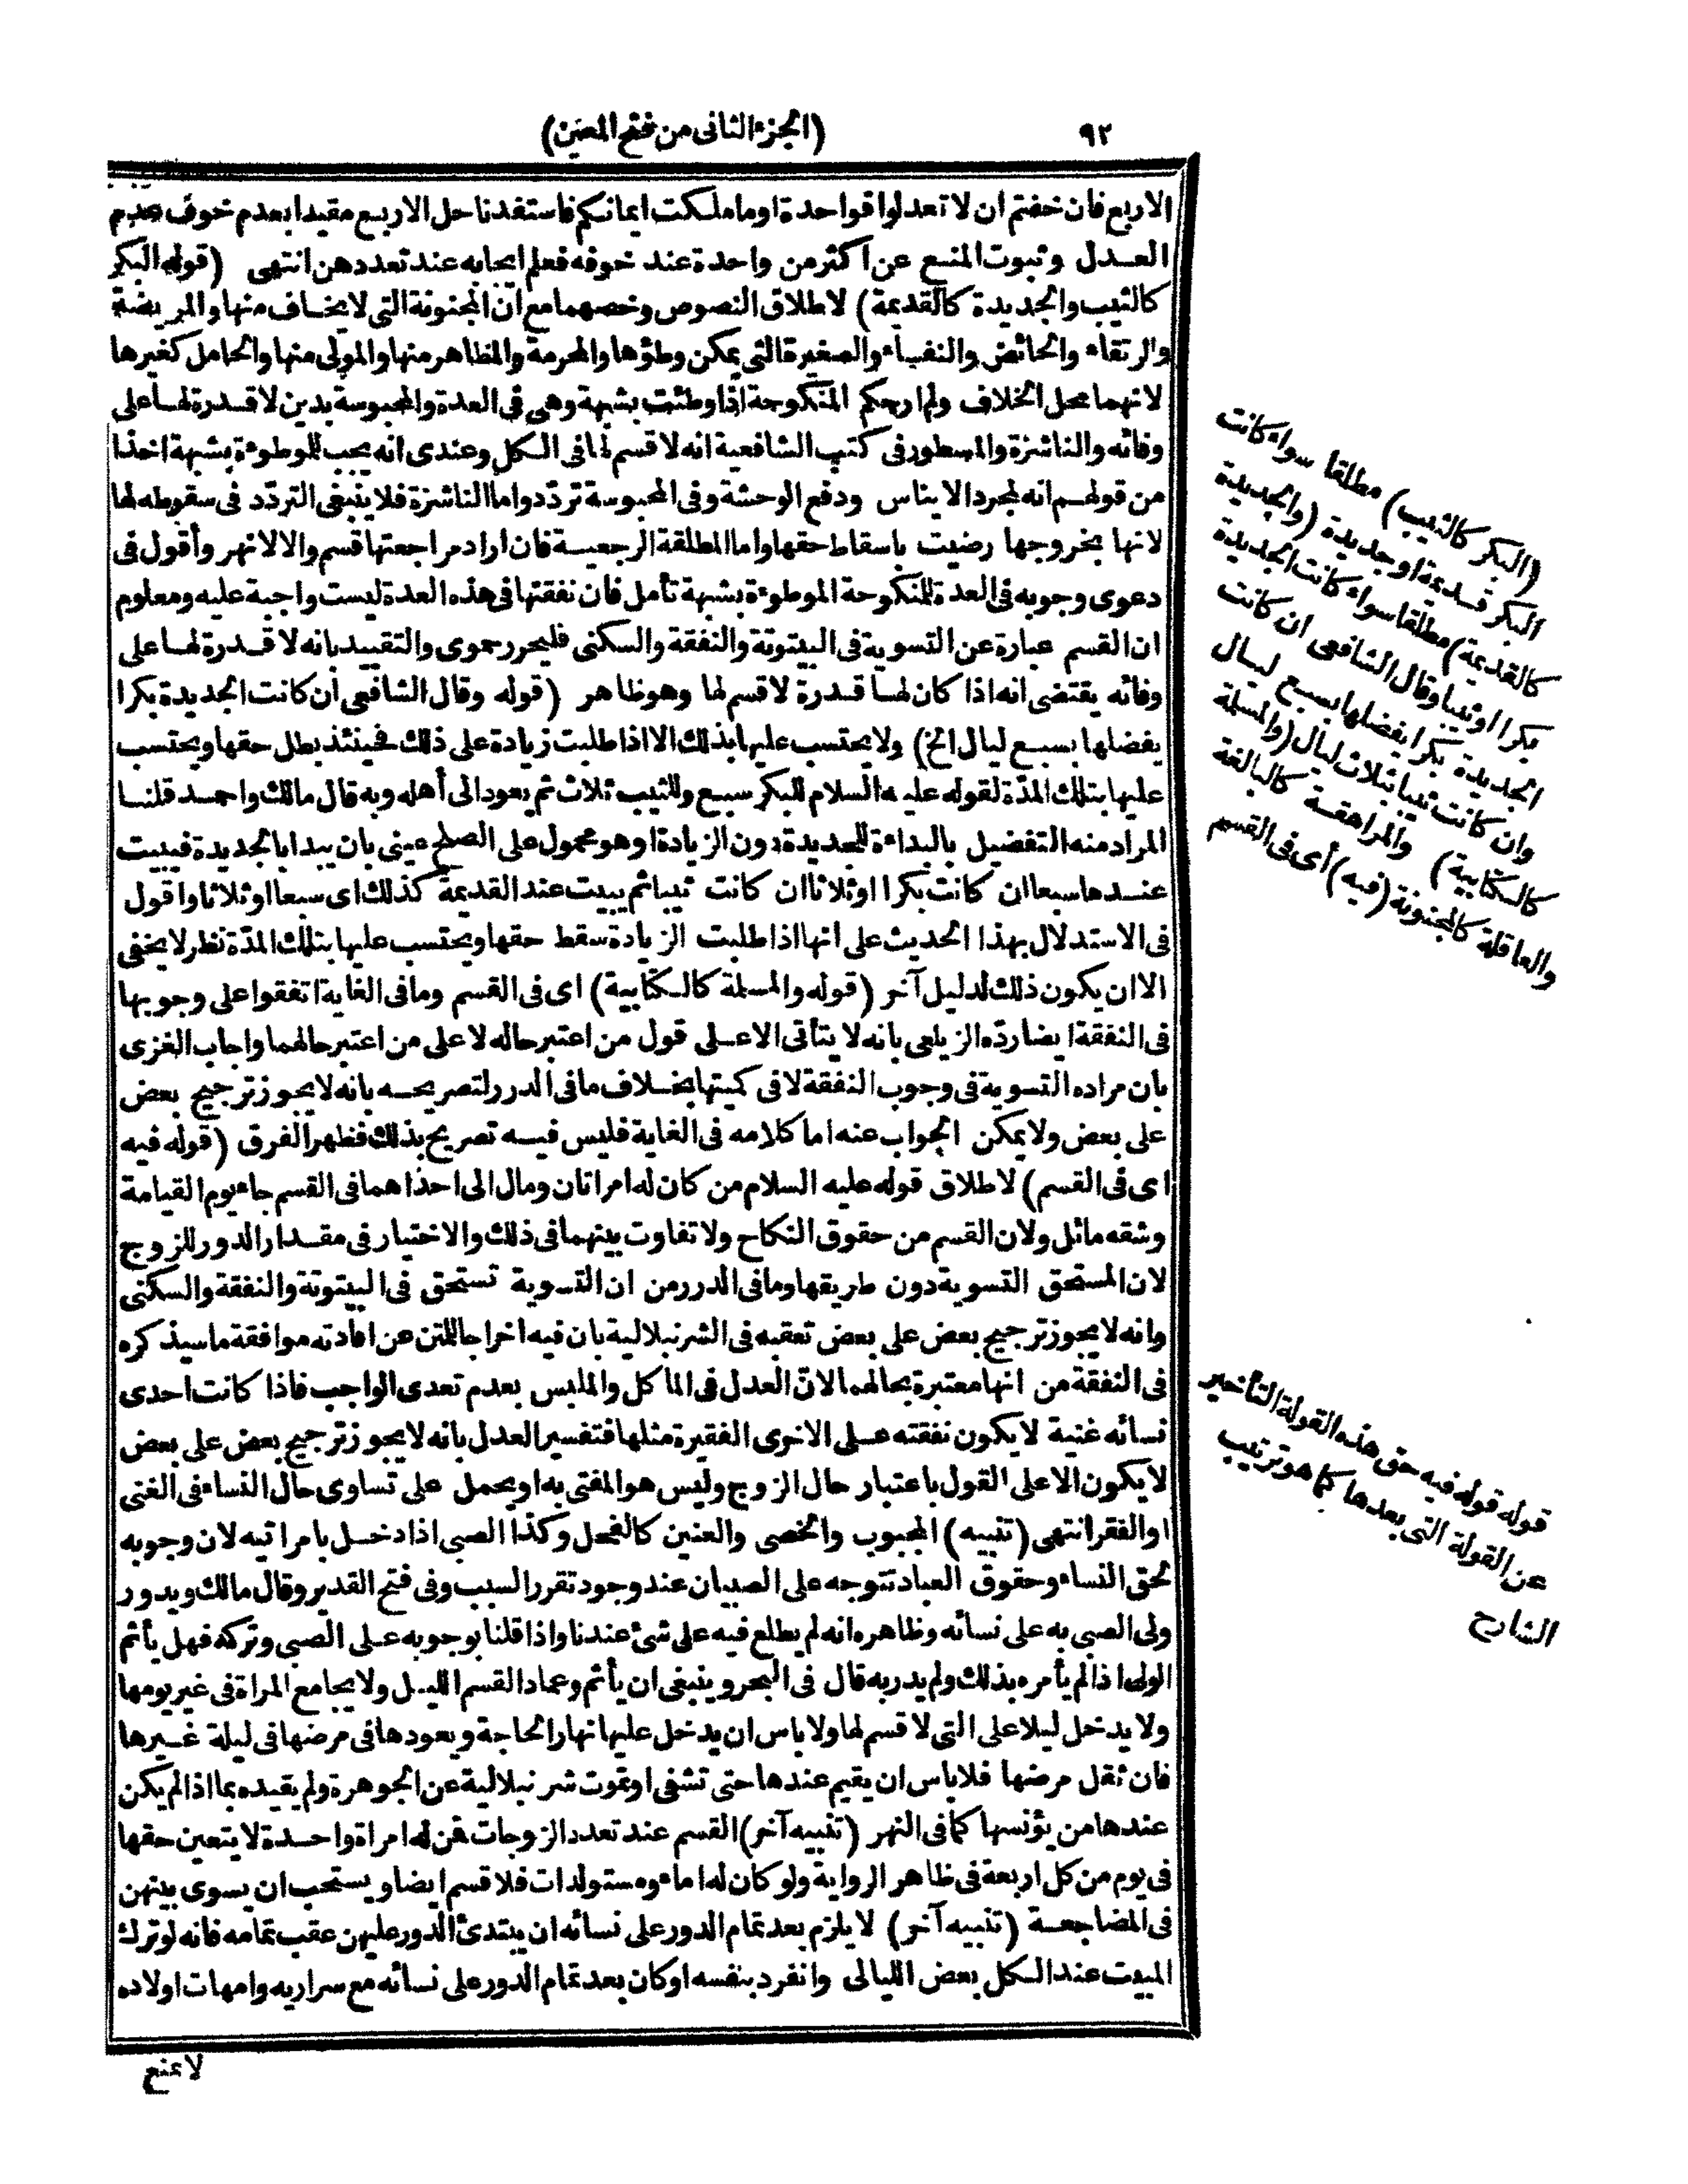 ٩٢
(الجزء الثانى من فتح المعين)
الاربع فان خفتم ان لا تعدلوا فواحدة او ما ملكت ايمانكم فاستفدنا حل الاربع مقيدا بعدم خوف عدم
العدل وثبوت المنع عن اكثر من واحدة عند خوفه فعلم ايجابه عند تعددهن انتهى (قوله البكر
كالثيب والجديدة كالقديمة) لاطلاق النصوص وخصهما مع ان المجنونة التى لا يخاف منها والمريضة
والرتقاء والحائض والنفساء والصغيرة التى يمكن وطؤها والمحرمة والمظاهر منها والمولى منها والحامل كغيرها
لانهما محل الخلاف ولم ار حكم المنكوحة اذا وطئت بشبهة وهى فى العدة والمحبوسة بدين لا قدرة لها على
وفائه والناشزة والمسطور فى كتب الشافعية انه لا قسم لها فى الكل وعندى انه يجب للموطوءة بشبهة اخذا
من قولهم انه لمجرد الايناس ودفع الوحشة وفى المحبوسة تردد واما الناشزة فلا ينبغى التردد فى سقوطه لها
لانها بخروجها رضيت باسقاط حقها واما المطلقة الرجعية فان اراد مراجعتها قسم والا لا نهر وأقول فى
دعوى وجوبه فى العدة للمنكوحة الموطوءة بشبهة تأمل فان نفقتها فى هذه العدة ليست واجبة عليه ومعلوم
ان القسم عبارة عن التسوية فى البيتوتة والنفقة والسكنى فليحرر حموى والتقييد بانه لا قدرة لها على
وفائه يقتضى انه اذا كان لها قدرة لا قسم لها وهو ظاهر (قوله وقال الشافعى ان كانت الجديدة بكرا
يفضلها بسبع ليال الخ) ولا يحتسب عليها بذلك الا اذا طلبت زيادة على ذلك فحينئذ بطل حقها ويحتسب
عليها بتلك المدة لقوله عليه السلام للبكر سبع وللثيب ثلاث ثم يعود الى أهله وبه قال مالك واحمد قلنا
المراد منه التفضيل بالبداءة للجديدة دون الزيادة او هو محمول على الصلح عينى بان يبدا بالجديدة فيبيت
عندها سبعا ان كانت بكرا او ثلاثا ان كانت ثيبا ثم يبيت عند القديمة كذلك اى سبعا او ثلاثا واقول
فى الاستدلال بهذا الحديث على انها اذا طلبت الزيادة سقط حقها ويحتسب عليها بتلك المدة نظر لا يخفى
الا ان يكون ذلك لدليل آخر (قوله والمسلمة كالكتابية) اى فى القسم وما فى الغاية اتفقوا على وجوبها
فى النفقة ايضا رده الزيلعى بانه لا يتأتى الا على قول من اعتبر حاله لا على من اعتبر حالهما واجاب الغزى
بان مراده التسوية فى وجوب النفقة لا فى كميتها بخلاف ما فى الدرر لتصريحه بانه لا يجوز ترجيح بعض
على بعض ولا يمكن الجواب عنه اما كلامه فى الغاية فليس فيه تصريح بذلك فظهر الفرق (قوله فيه
اى فى القسم) لاطلاق قوله عليه السلام من كان له امراتان ومال الى احداهما فى القسم جاء يوم القيامة
وشقه مائل ولان القسم من حقوق النكاح ولا تفاوت بينهما فى ذلك والاختيار فى مقدار الدور للزوج
لان المستحق التسوية دون طريقها وما فى الدرر من ان التسوية تستحق فى البيتوتة والنفقة والسكنى
وانه لا يجوز ترجيح بعض على بعض تعقبه فى الشرنبلالية بان فيه اخراجا للمتن عن افادته موافقة ما سيذكره
فى النفقة من انها معتبرة بحالهما لان العدل فى الماكل والملبس بعدم تعدى الواجب فاذا كانت احدى
نسائه غنية لا يكون نفقته على الاخرى الفقيرة مثلها فتفسير العدل بانه لا يجوز ترجيح بعض على بعض
لا يكون الا على القول باعتبار حال الزوج وليس هو المفتى به او يحمل على تساوى حال النساء فى الغنى
او الفقر انتهى (تنبيه) المجبوب والخصى والعنين كالفحل وكذا الصبى اذا دخل بامراتيه لان وجوبه
لحق النساء وحقوق العباد تتوجه على الصبيان عند وجود تقرر السبب وفى فتح القدير وقال مالك ويدور
ولى الصبى به على نسائه وظاهره انه لم يطلع فيه على شئ عندنا واذا قلنا بوجوبه على الصبى وتركه فهل يأثم
الولى اذا لم يأمره بذلك ولم يدر به قال فى البحر وينبغى ان يأثم وعماد القسم الليل ولا يجامع المراة فى غير يومها
ولا يدخل ليلا على التى لا قسم لها ولا باس ان يدخل عليها نهارا لحاجة ويعودها فى مرضها فى ليلة غيرها
فان ثقل مرضها فلا باس ان يقيم عندها حتى تشفى او تموت شرنبلالية عن الجوهرة ولم يقيده بما اذا لم يكن
عندها من يؤنسها كما فى النهر (تنبيه آخر) القسم عند تعدد الزوجات فمن له امراة واحدة لا يتعين حقها
فى يوم من كل اربعة فى ظاهر الرواية ولو كان له اماء ومستولدات فلا قسم ايضا ويستحب ان يسوى بينهن
فى المضاجعة (تنبيه آخر) لا يلزم بعد تمام الدور على نسائه ان يبتدئ الدور عليهن عقب تمامه فانه لو ترك
المبيت عند الكل بعض الليالى وانفرد بنفسه او كان بعد تمام الدور على نسائه مع سراريه وامهات اولاده
لا يمنع
(البكر كالثيب) مطلقا سواء كانت
البكر قديمة او جديدة (والجديدة
كالقديمة) مطلقا سواء كانت الجديدة
بكرا او ثيبا وقال الشافعى ان كانت
الجديدة بكرا يفضلها بسبع ليال
وان كانت ثيبا بثلاث ليال (والمسلمة
كالكتابية) والمراهقة كالبالغة
والعاقلة كالمجنونة (فيه) أى فى القسم
قوله قوله فيه حق هذه القولة التأخير
عن القولة التى بعدها كما هو ترتيب
الشارح